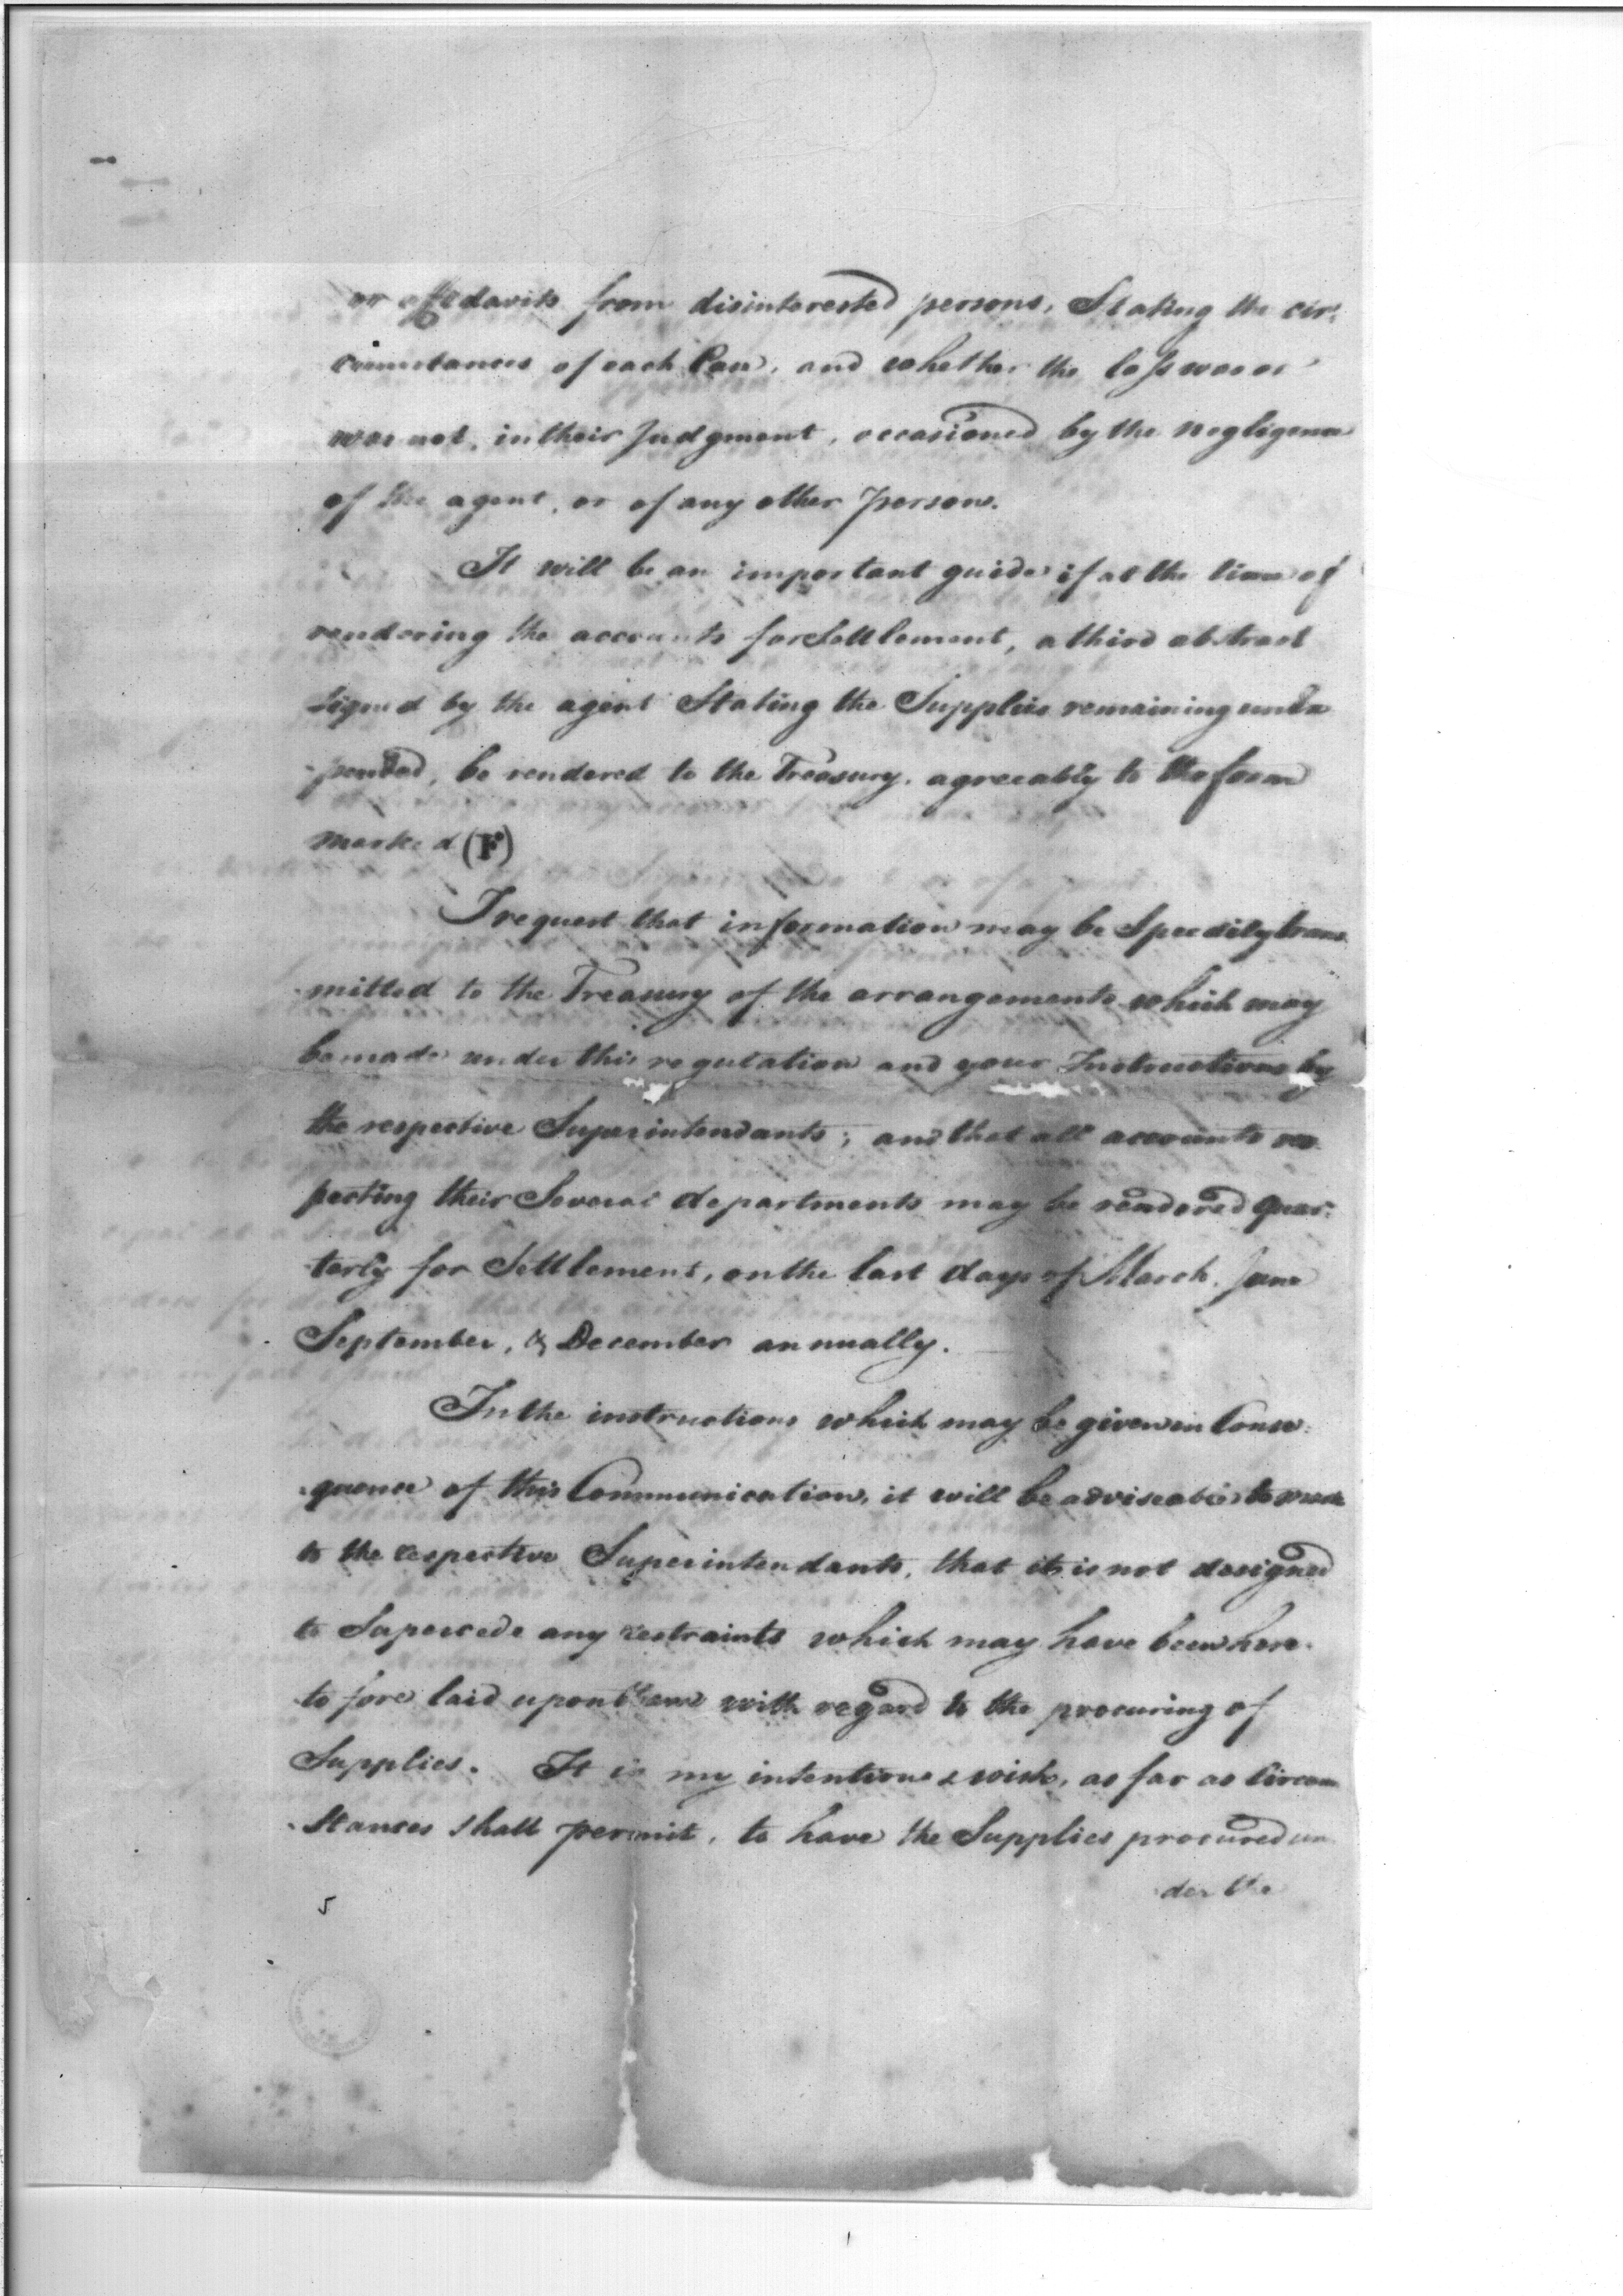 or affidavits from disinterested persons, Stating the cir:
cumstances of each Case, and whether the loss was or
was not, in their Judgment, occasioned by the negligence
of the agent, or of any other person.
It will be an important guide if at the time of
rendering the accounts for Settlement, a third abstract
signed by the agent Stating the Supplies remaining
pended, be rendered to the Treasury, agreeably to the form
marked (F)
I request that information may be Speedily trans
-mitted to the Treasury of the arrangements which may
be made under this regulation and your Instructions by
the respective Superintendants; and that all accounts res
pecting their Several departments may be rendered quar:
terly for Settlement, on the last days of March, June
September, & December annually.
In the instructions which may be given in Conse:
quence of this Communication, it will be adviseable to
to the respective Superintendants, that it is not designed
to Supercede any restraints which may have been here-
to fore laid upon them with regard to the procuring of
Supplies. It is my intention & wish, as far as Circum
-Stances Shall permit, to have the Supplies procured un
der the
5